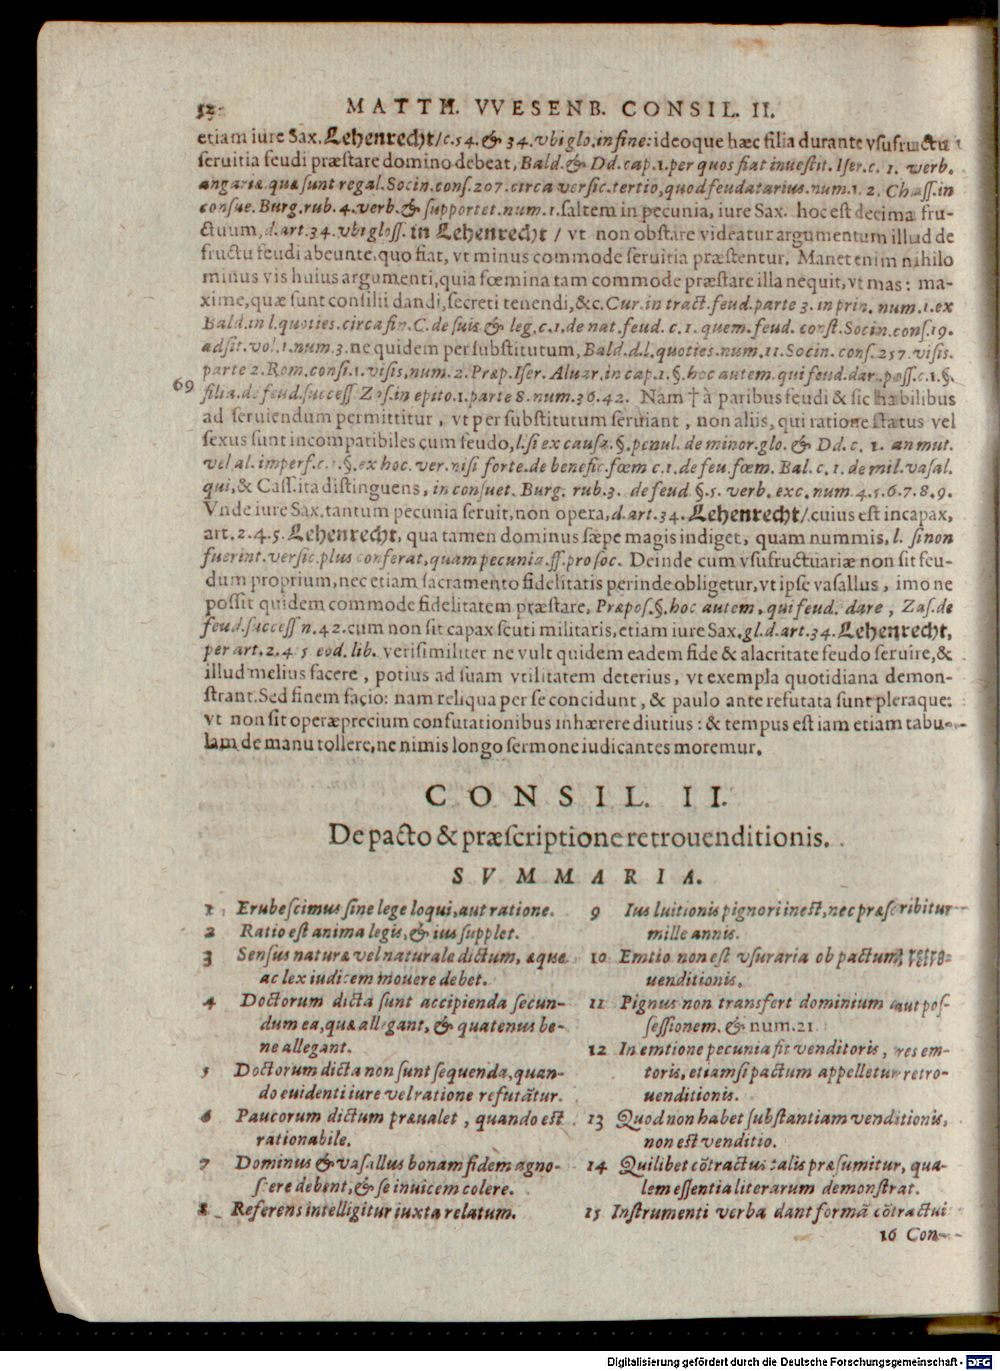 52 MATTH. VVESENB. CONSIL. II.
etiam iure Sax. Lehenrecht/c.54.& 34.vbi glo.in fine: ideoque hæc filia durante vsufructu
seruitia feudi præstare domino debeat, Bald.& Dd.cap.1.per quos fiat inuestit. Iser.c. 1. verb.
angariæ.quæ sunt regal.Socin.cons.207.circa versic.tertio,quod feudatarius.num.1.2. Chass.in
consue. Burg.rub.4.verb.& supportet.num.1.saltem in pecunia, iure Sax. hoc est decima fru-
ctuum,d.art.34.vbi gloss. in Lehenrecht / vt non obstare videatur argumentum illud de
fructu feudi abeunte, quo fiat, vt minus commode seruitia præstentur. Manet enim nihilo
minus vis huius argumenti, quia fœmina tam commode præstare illa nequit, vt mas: ma-
xime, quæ sunt consilii dandi, secreti tenendi, &c. Cur.in tract.feud.parte 3.in prin. num.1.ex
Bald.in l.quoties.circa fin.C.de suis & leg.c.1.de nat.feud. c.1. quem.feud. const.Socin.cons.19.
adsit.vol.1.num.3. ne quidem per substitutum, Bald.d.l.quoties.num.11.Socin. cons.257.visis.
parte 2.Rom.consi.1.visis,num. 2. Præp.Iser. Aluar.in cap.1.§.hoc autem.qui feud.dar.poss.c.1.§.
69 filia.de feud.success Zas.in epito.1.parte 8.num.36.42. Nam † à paribus feudi & sic habilibus
ad seruiendum permittitur, vt per substitutum seruiant, non aliis, qui ratione status vel
sexus sunt incompatibiles cum feudo, l.si ex causa.§.penul. de minor.glo. & Dd. c. 1. an mut.
vel al. imperf.c.1.§.ex hoc. ver.nisi forte.de benefic.fœm c.1.de feu.fœm. Bal. c.1.de mil.vasal.
qui, & Cass.ita distinguens, in consuet. Burg. rub.3. de feud §.5. verb. exc.num.4.5.6.7.8.9.
Vnde iure Sax. tantum pecunia seruit, non opera, d.art.34. Lehenrecht/. cuius est incapax,
art.2.4.5. Lehenrecht, qua tamen dominus sæpe magis indiget, quam nummis, l. si non
fuerint.versic.plus conferat,quam pecunia.ff.pro soc. Deinde cum vsufructuariæ non sit feu-
dum proprium, nec etiam sacramento fidelitatis perinde obligetur, vt ipse vasallus, imo ne
possit quidem commode fidelitatem præstare, Præpos.§.hoc autem, qui feud. dare, Zas.de
feud.success n.42. cum non sit capax scuti militaris, etiam iure Sax.gl.d.art.34. Lehenrecht,
per art.2.4.5 eod.lib. verisimiliter ne vult quidem eadem fide & alacritate feudo seruire, &
illud melius facere, potius ad suam vtilitatem deterius, vt exempla quotidiana demon-
strant. Sed finem facio: nam reliqua per se concidunt, & paulo ante refutata sunt pleraque:
vt non sit operæprecium confutationibus inhærere diutius: & tempus est iam etiam tabu-
lam de manu tollere, ne nimis longo sermone iudicantes moremur.
CONSIL. II.
De pacto & præscriptione retrouenditionis.
SVMMARIA.
1 Erubescimus sine lege loqui, aut ratione.
2 Ratio est anima legis, & ius supplet.
3 Sensus naturæ vel naturale dictum, æque
ac lex iudicem mouere debet.
4 Doctorum dicta sunt accipienda secun-
dum ea, quæ allegant, & quatenus be-
ne allegant.
5 Doctorum dicta non sunt sequenda, quan-
do euidenti iure vel ratione refutãtur.
6 Paucorum dictum præualet, quando est
rationabile.
7 Dominus & vasallus bonam fidem agno-
scere debent, & se inuicem colere.
8 Referens intelligitur iuxta relatum.
9 Ius luitionis pignori inest, nec præscribitur
mille annis.
10 Emtio non est vsuraria ob pactum retro-
uenditionis.
11 Pignus non transfert dominium aut pos-
sessionem. & num.21.
12 In emtione pecunia fit venditoris, res em-
toris, etiamsi pactum appelletur retro-
uenditionis.
13 Quod non habet substantiam venditionis,
non est venditio.
14 Quilibet cõtractus talis præsumitur, qua-
lem essentia literarum demonstrat.
15 Instrumenti verba dant formã cõtractui
16 Con-
Digitalisierung gefördert durch die Deutsche Forschungsgemeinschaft - DFG